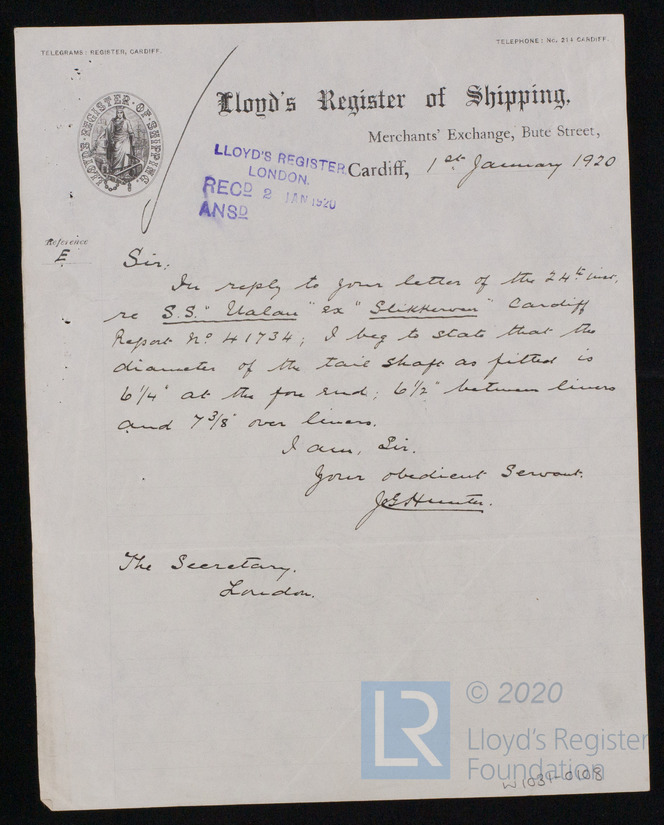 TELEGRAMS: REGISTER, CARDIFF.
TELEPHONE: No. 214 CARDIFF.
LLOYD'S REGISTER OF SHIPPING.
Lloyd's Register of Shipping,
Merchants' Exchange, Bute Street,
Cardiff, 1st January 1920
LLOYD'S REGISTER
LONDON.
RECD 2 JAN 1920
ANSD
Reference
E
Sir,
In reply to your letter of the 24th inst,
re S.S. "Ualan" ex "Slikkerveer" Cardiff
Report No 41734; I beg to state that the
diameter of the tail shaft as fitted is
6 1/4" at the fore end; 6 1/2" between liners
and 7 3/8" over liners.
I am, Sir.
Your obedient Servant.
J G Hunter.
The Secretary.
London.
LR
© 2020
Lloyd's Register
Foundation
W1031-0108